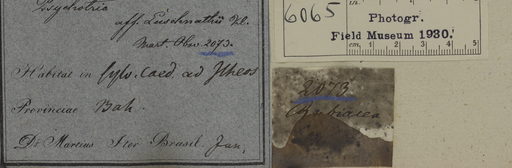 Psychotria
aff. Luschnathii Kl.
Mart. Obs. 2073.
Habitat in sylv. caed. ad Ilheos
Provinciae Bah.
Dr Martius Iter Brasil. Jan.
6065
Photogr.
Field Museum 1930.
cm 1 2 3 4 5
2073